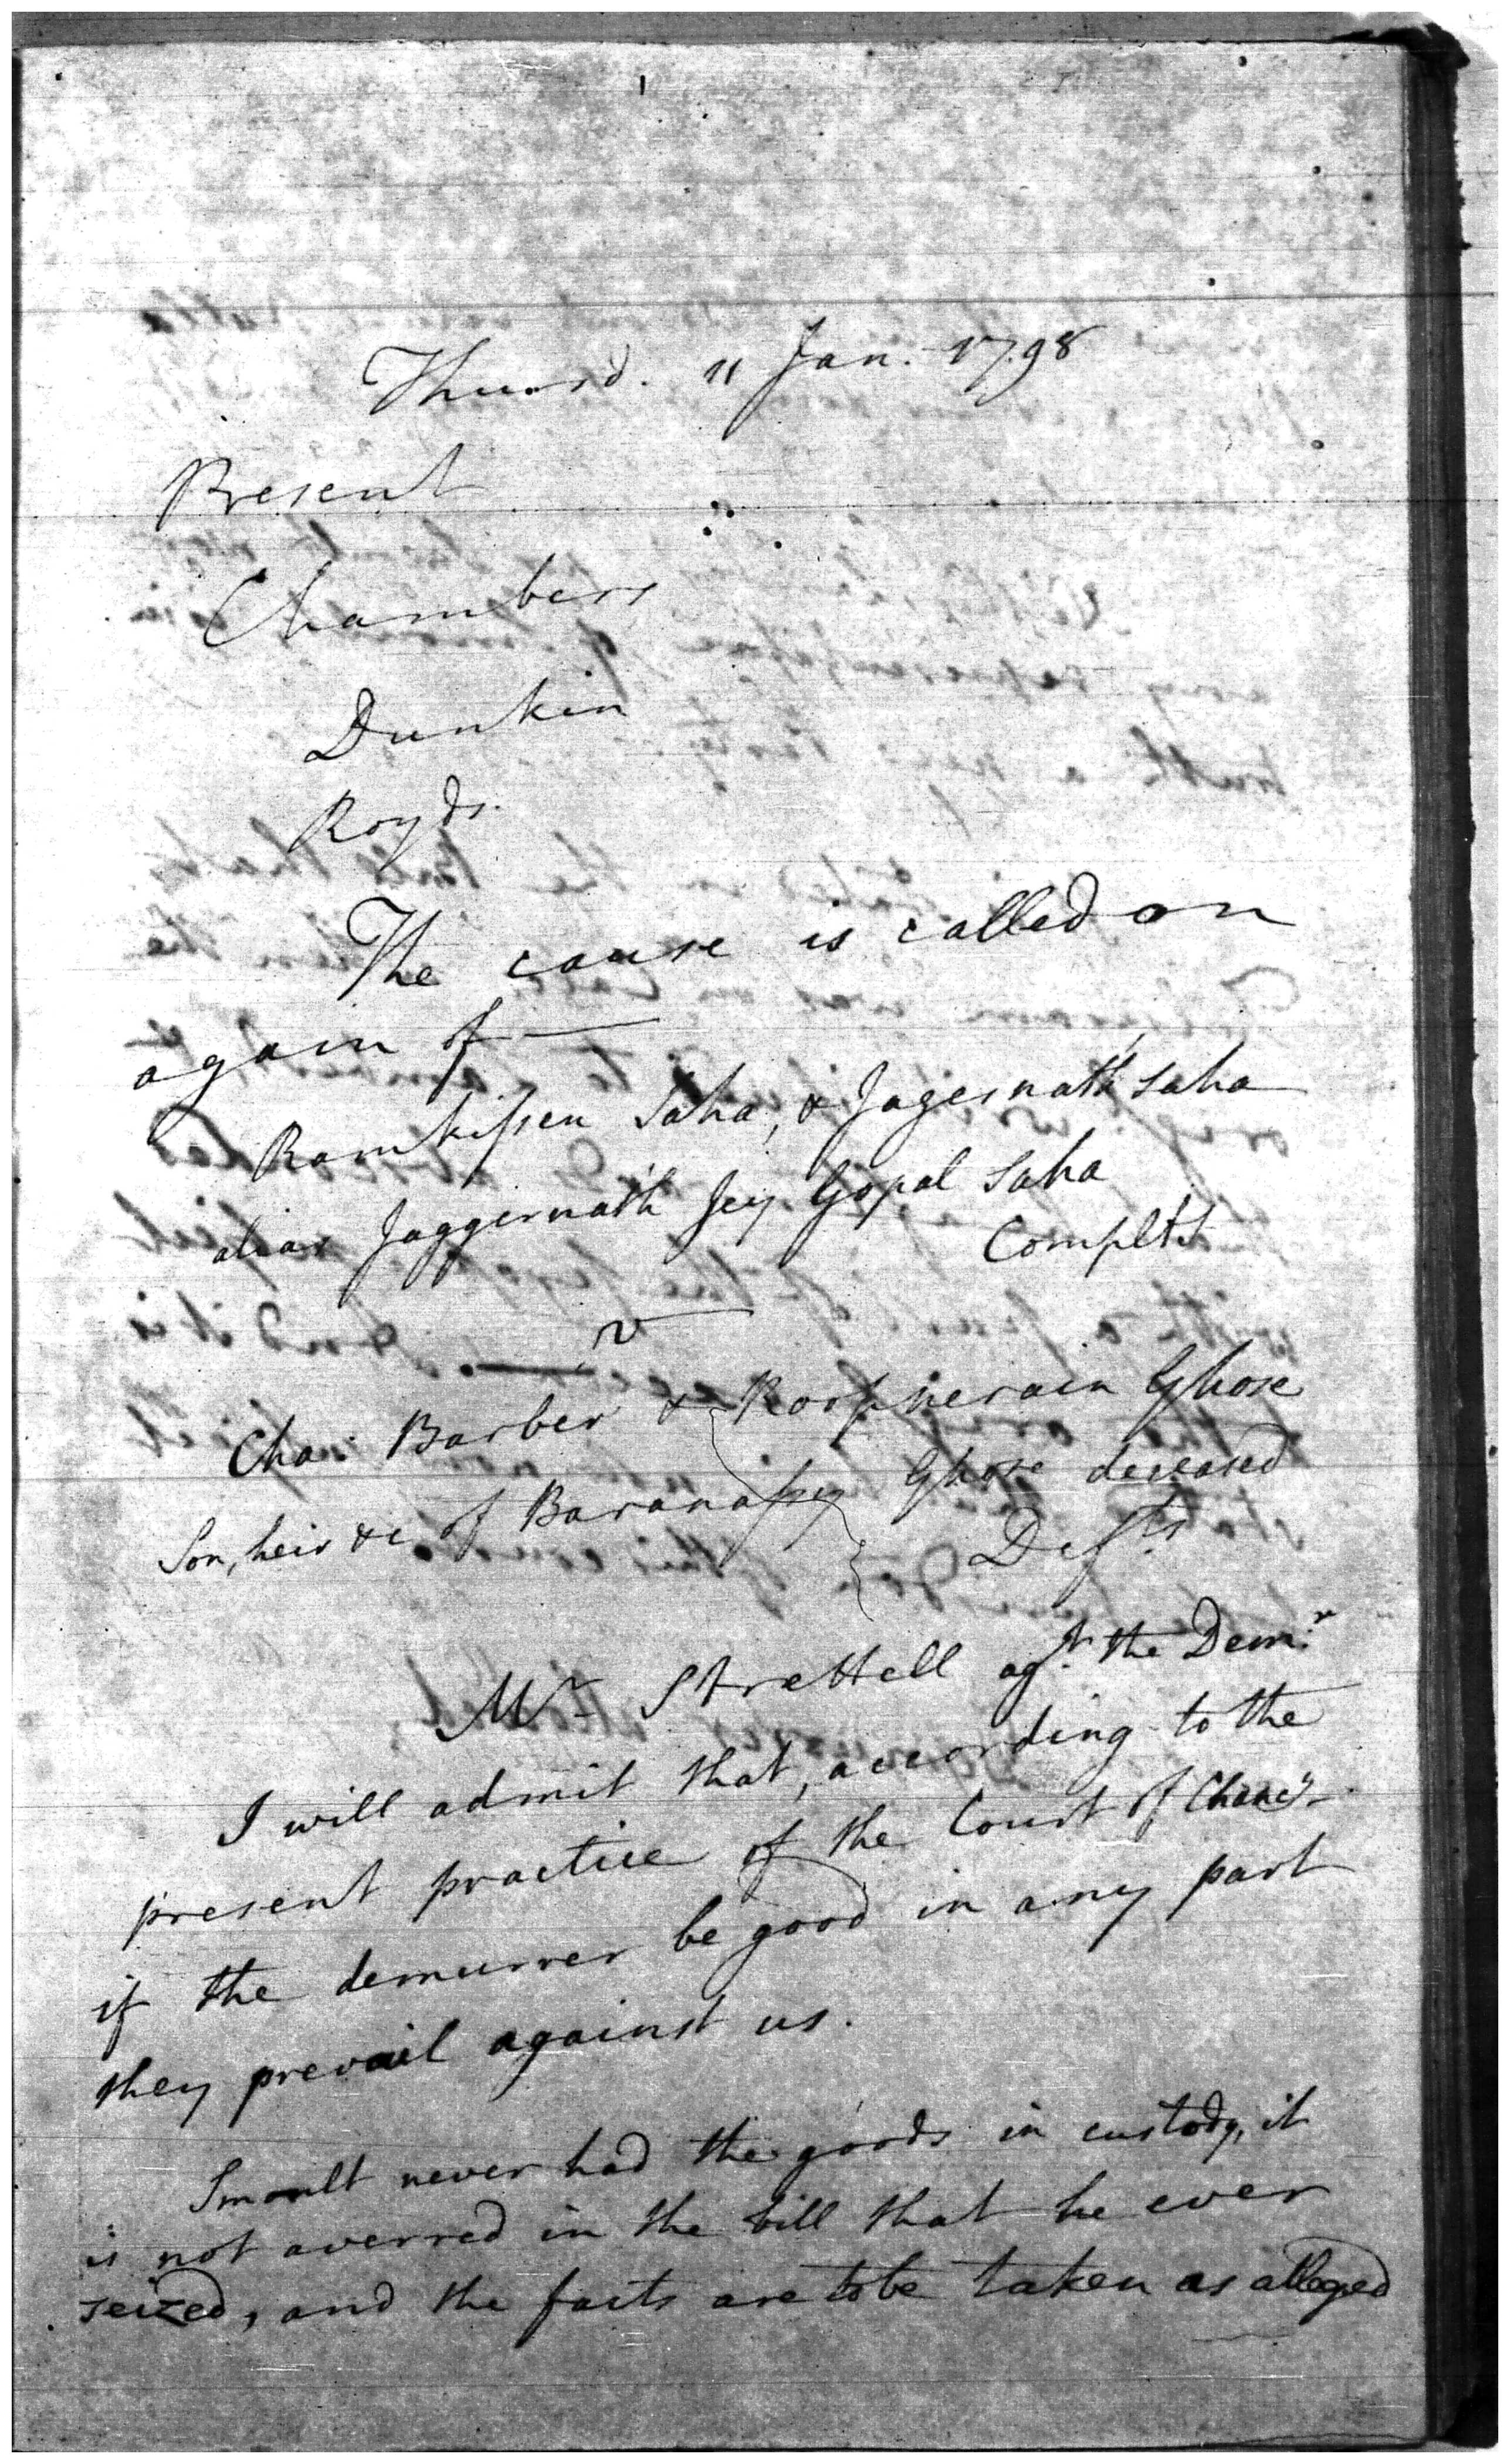 1
Thursd. 11 Jan. 1798
Present
Chambers
Dunkin
Royds.
The cause is called on
again of —
Ramkissen Saha, & Jagernath Saha
alias Jaggernath Jey Gopal Saha
Complts
v
Cha. Barber & Roopnerain Ghose
Son, heir &c of Baranassey Ghose deceased
Defts
Mr Strettell agt. the Demr
I will admit that, according to the
present practice of the Court of Chancy.
if the demurrer be good in any part
they prevail against us.
Smoult never had the goods in custody, it
is not averred in the bill that he ever
seized, and the facts are to be taken as alleged